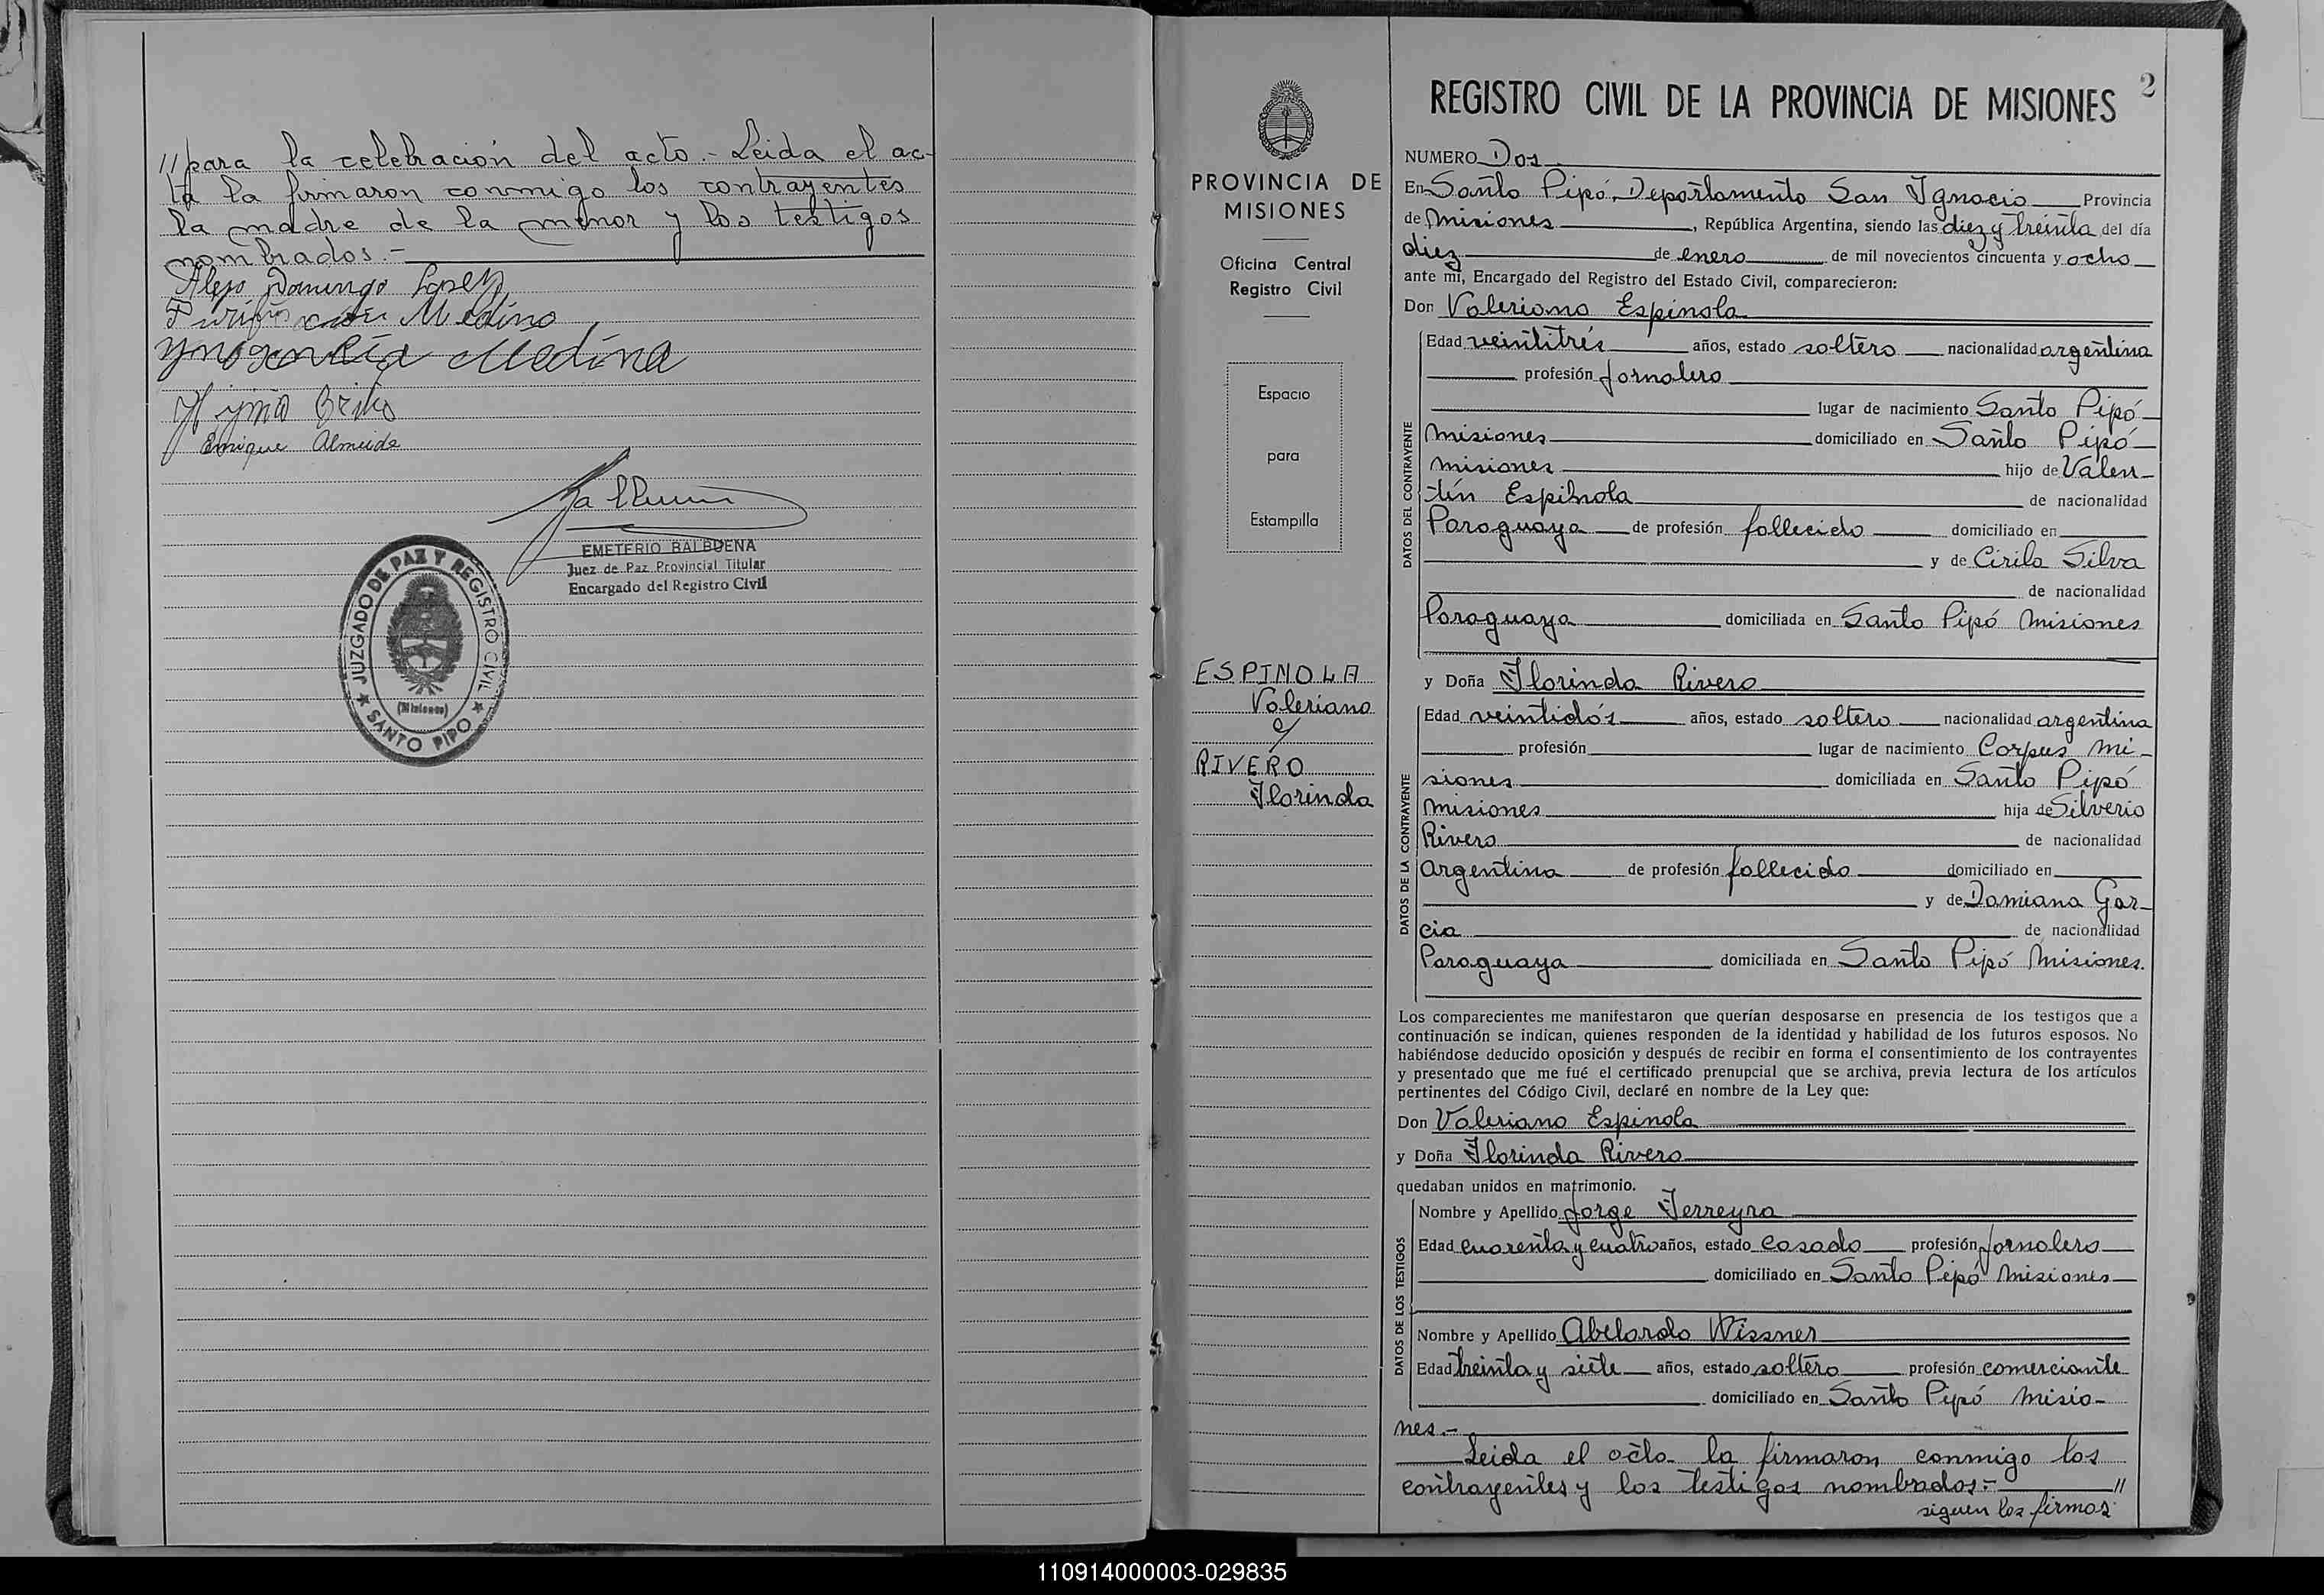 //para la celebración del acto.- Leida el ac-
ta la firmaron conmigo los contrayentes
la madre de la menor y los testigos
nombrados.-
Alejo Domingo Lopez
Medina
Ynosencia Medina
Higinio Brites
Enrique Almeida
EMETERIO BALBUENA
Juez de Paz Provincial Titular
Encargado del Registro Civil
JUZGADO DE PAZ Y REGISTRO CIVIL
(Misiones)
SANTO PIPO
PROVINCIA DE
MISIONES
Oficina Central
Registro Civil
Espacio
para
Estampilla
ESPINOLA
Valeriano
y
RIVERO
Florinda
2
REGISTRO CIVIL DE LA PROVINCIA DE MISIONES
NUMERO Dos
En Santo Pipó, Departamento San Ignacio Provincia
de Misiones, República Argentina, siendo las diez y treinta del día
diez de enero de mil novecientos cincuenta y ocho
ante mí, Encargado del Registro del Estado Civil, comparecieron:
Don Valeriano Espinola
DATOS DEL CONTRAYENTE
Edad veintitrés años, estado soltero nacionalidad argentina
profesión Jornalero
lugar de nacimiento Santo Pipó
Misiones domiciliado en Santo Pipó
Misiones hijo de Valen-
tín Espínola de nacionalidad
Paraguaya de profesión fallecido domiciliado en
y de Cirila Silva
de nacionalidad
Paraguaya domiciliada en Santo Pipó Misiones
y Doña Florinda Rivero
DATOS DE LA CONTRAYENTE
Edad veintidós años, estado soltero nacionalidad argentina
profesión lugar de nacimiento Corpus Mi-
siones domiciliada en Santo Pipó
Misiones hija de Silverio
Rivero de nacionalidad
Argentina de profesión fallecido domiciliado en
y de Damiana Gar-
cia de nacionalidad
Paraguaya domiciliada en Santo Pipó Misiones.
Los comparecientes me manifestaron que querían desposarse en presencia de los testigos que a
continuación se indican, quienes responden de la identidad y habilidad de los futuros esposos. No
habiéndose deducido oposición y después de recibir en forma el consentimiento de los contrayentes
y presentado que me fué el certificado prenupcial que se archiva, previa lectura de los artículos
pertinentes del Código Civil, declaré en nombre de la Ley que:
Don Valeriano Espinola
y Doña Florinda Rivero
quedaban unidos en matrimonio.
DATOS DE LOS TESTIGOS
Nombre y Apellido Jorge Ferreyra
Edad cuarenta y cuatro años, estado casado profesión Jornalero
domiciliado en Santo Pipó Misiones
Nombre y Apellido Abelardo Wissner
Edad treinta y siete años, estado soltero profesión comerciante
domiciliado en Santo Pipó Misio-
nes.-
Leida el acta la firmaron conmigo los
contrayentes y los testigos nombrados:- //
siguen las firmas
110914000003-029835